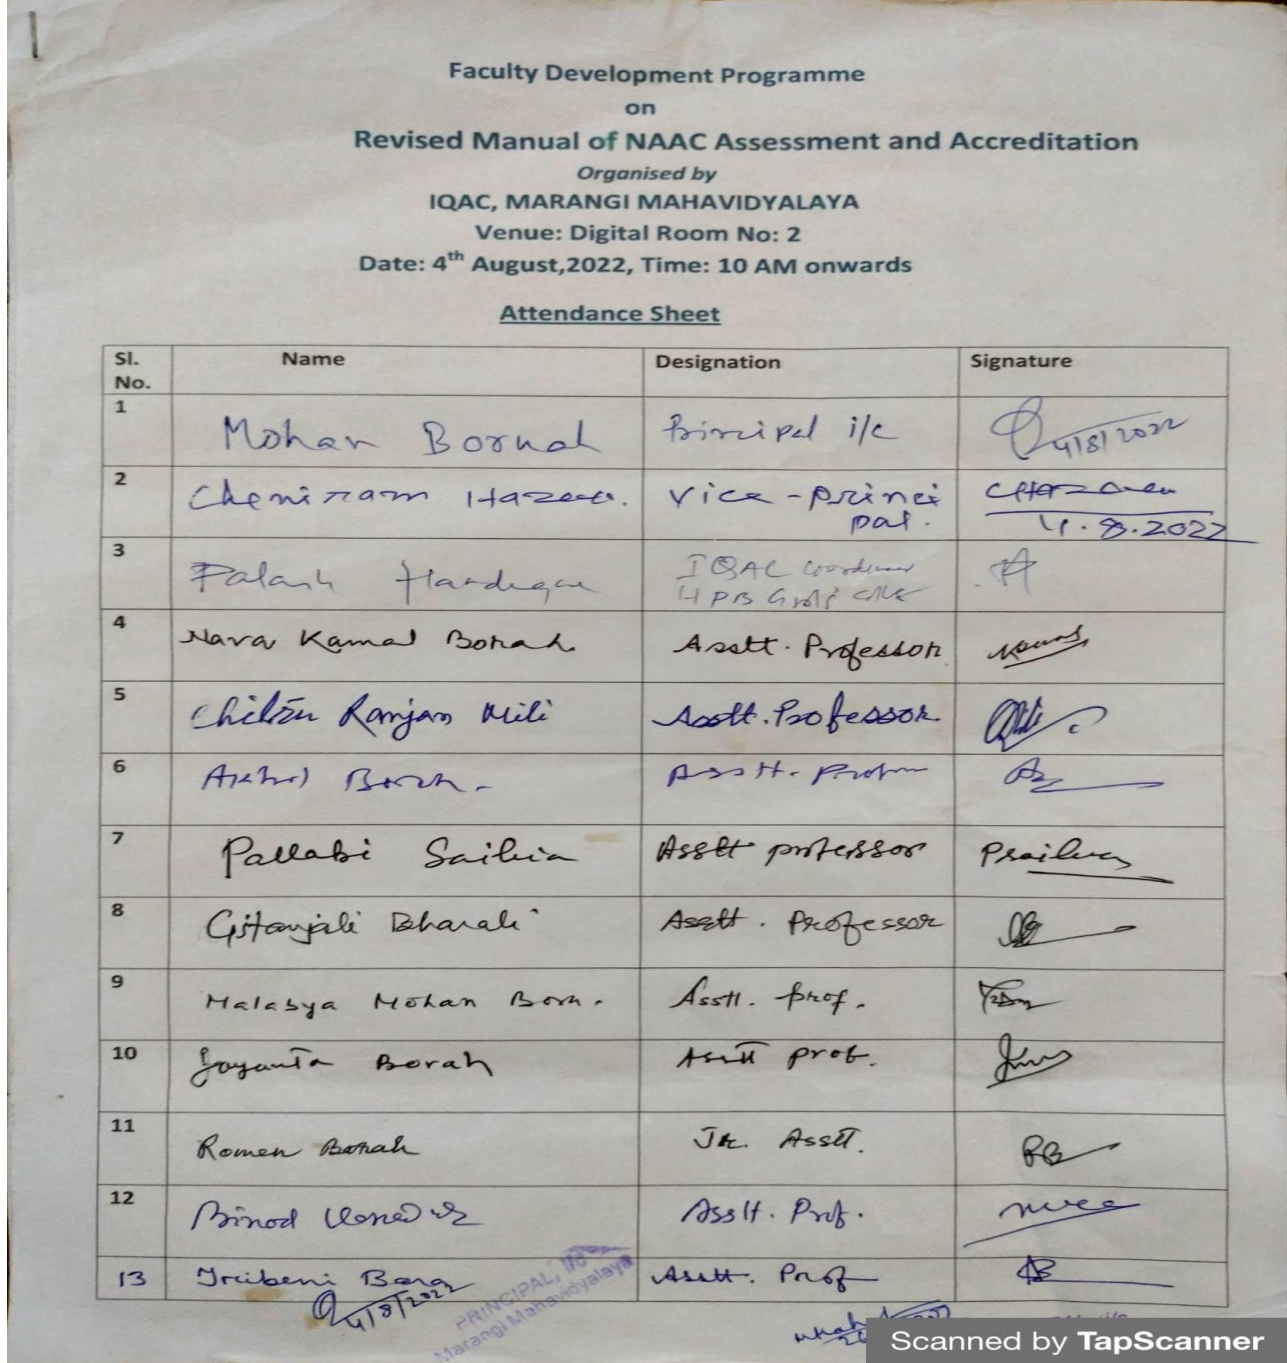 Faculty Development Programme
on
Revised Manual of NAAC Assessment and Accreditation
Organised by
IQAC, MARANGI MAHAVIDYALAYA
Venue: Digital Room No: 2
Date: 4th August,2022, Time: 10 AM onwards
Attendance Sheet
Sl. No. Name Designation Signature
1 Mohan Borah Principal i/c 4/8/2022
2 Cheniram Hazarika. Vice-princi
pal. 4.8.2022
3 Palash IQAC Coordinator
HPB Girls' College
4 Nava Kamal Borah Asstt. Professor
5 Ranjan Mili Asstt. Professor
6 Borah. Asstt. Profsr
7 Pallabi Saikia Asstt professor PSaikia
8 Gitanjali Bharali Asstt. Professor
9 Malabya Mohan Bora. Asstt. prof.
10 Jayanta Borah Asstt prof.
11 Romen Borah Jr. Asstt. RB
12 Binod Asstt. Prof.
13 Tribeni Bora Asstt. Prof
4/8/2022
PRINCIPAL, i/c
Marangi Mahavidyalaya
Scanned by TapScanner